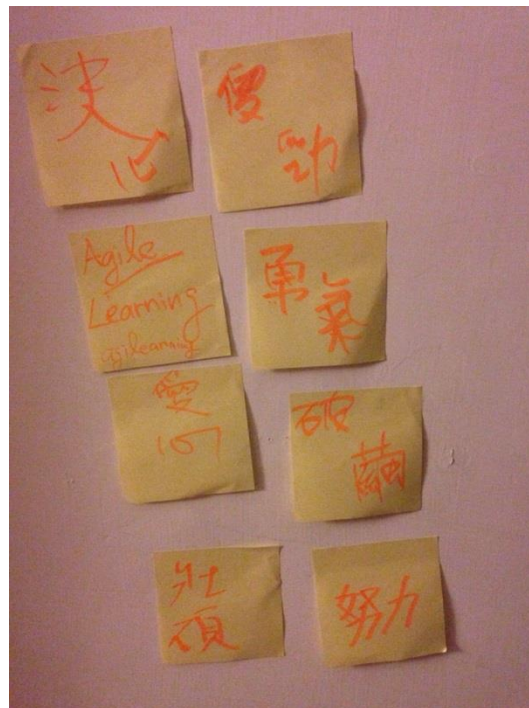 決心
傻勁
Agile
Learning
agilearning
勇氣
愛心
破繭
壯碩
努力